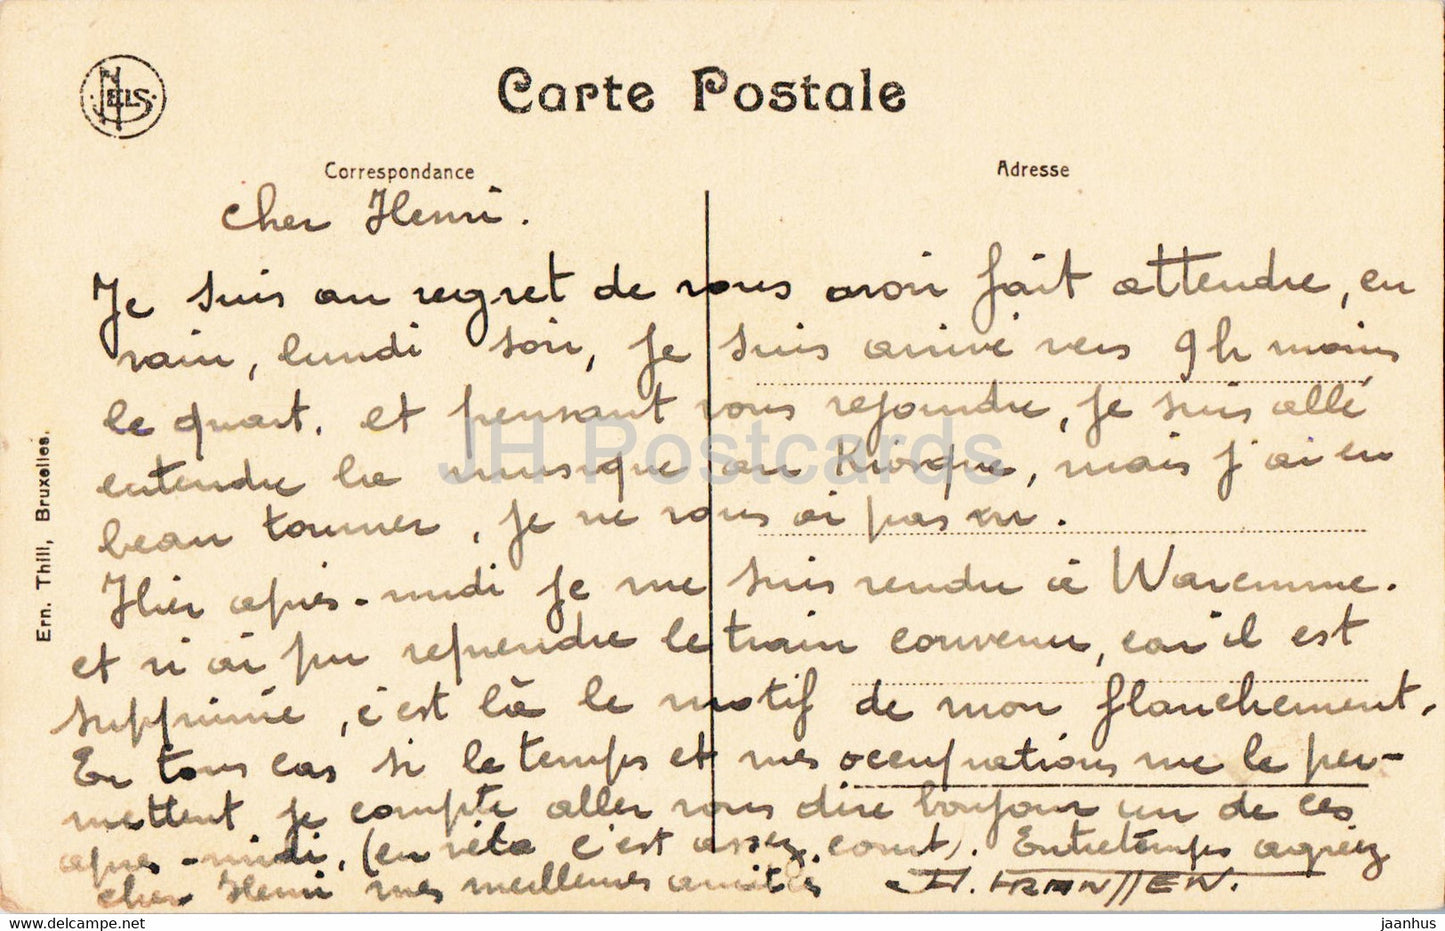 NELS
Carte Postale
Correspondance
Adresse
cher Henri.
Je suis au regret de vous avoir fait attendre, en
vain, lundi soir, je suis arrivé vers 9 h moins
le quart. et pensant vous rejoindre, je suis allé
entendre la musique au Kiosque, mais j'ai eu
beau tourner, je ne vous ai pas vu.
Hier après-midi je me suis rendu à Waremme.
et n'ai pu reprendre le train convenu, car il est
supprimé, c'est là le motif de mon flanchement.
En tous cas si le temps et mes occupations me le per-
mettent je compte aller vous dire bonjour un de ces
après-midi, (en vélo c'est assez court). Entretemps agréez
cher Henri mes meilleures amitiés H. FRANSSEN.
Ern. Thill, Bruxelles.
JH Postcards
jaanhus
www.delcampe.net